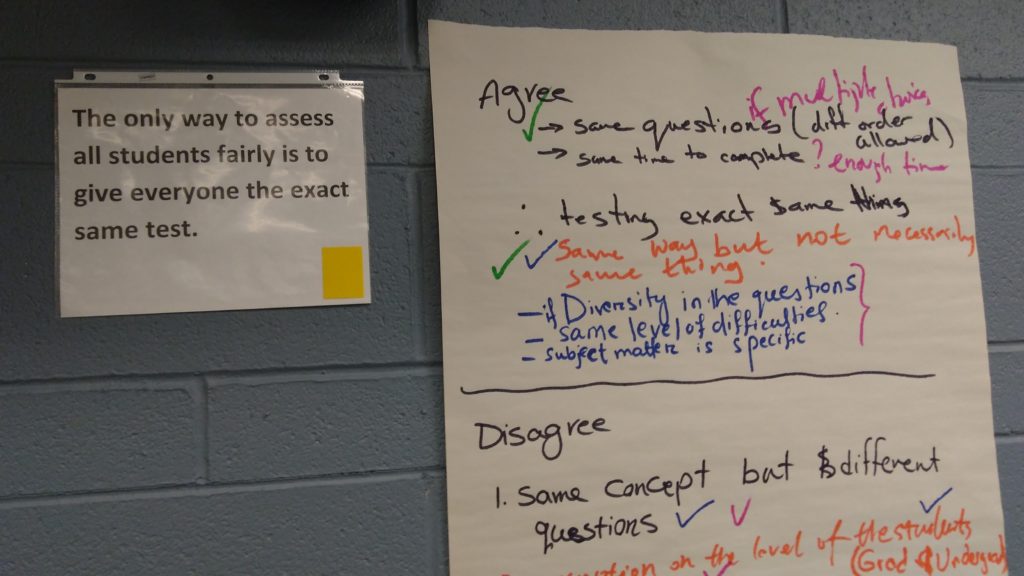 The only way to assess
all students fairly is to
give everyone the exact
same test.
Agree
if multiple tries
→ same questions (diff order allowed)
→ same time to complete ? enough time
∴ testing exact same thing
same way but not necessarily
same thing.
- if Diversity in the questions
- same level of difficulties.
- subject matter is specific
Disagree
1. Same concept but different
questions
on the level of the students
(Grad & Undergrad